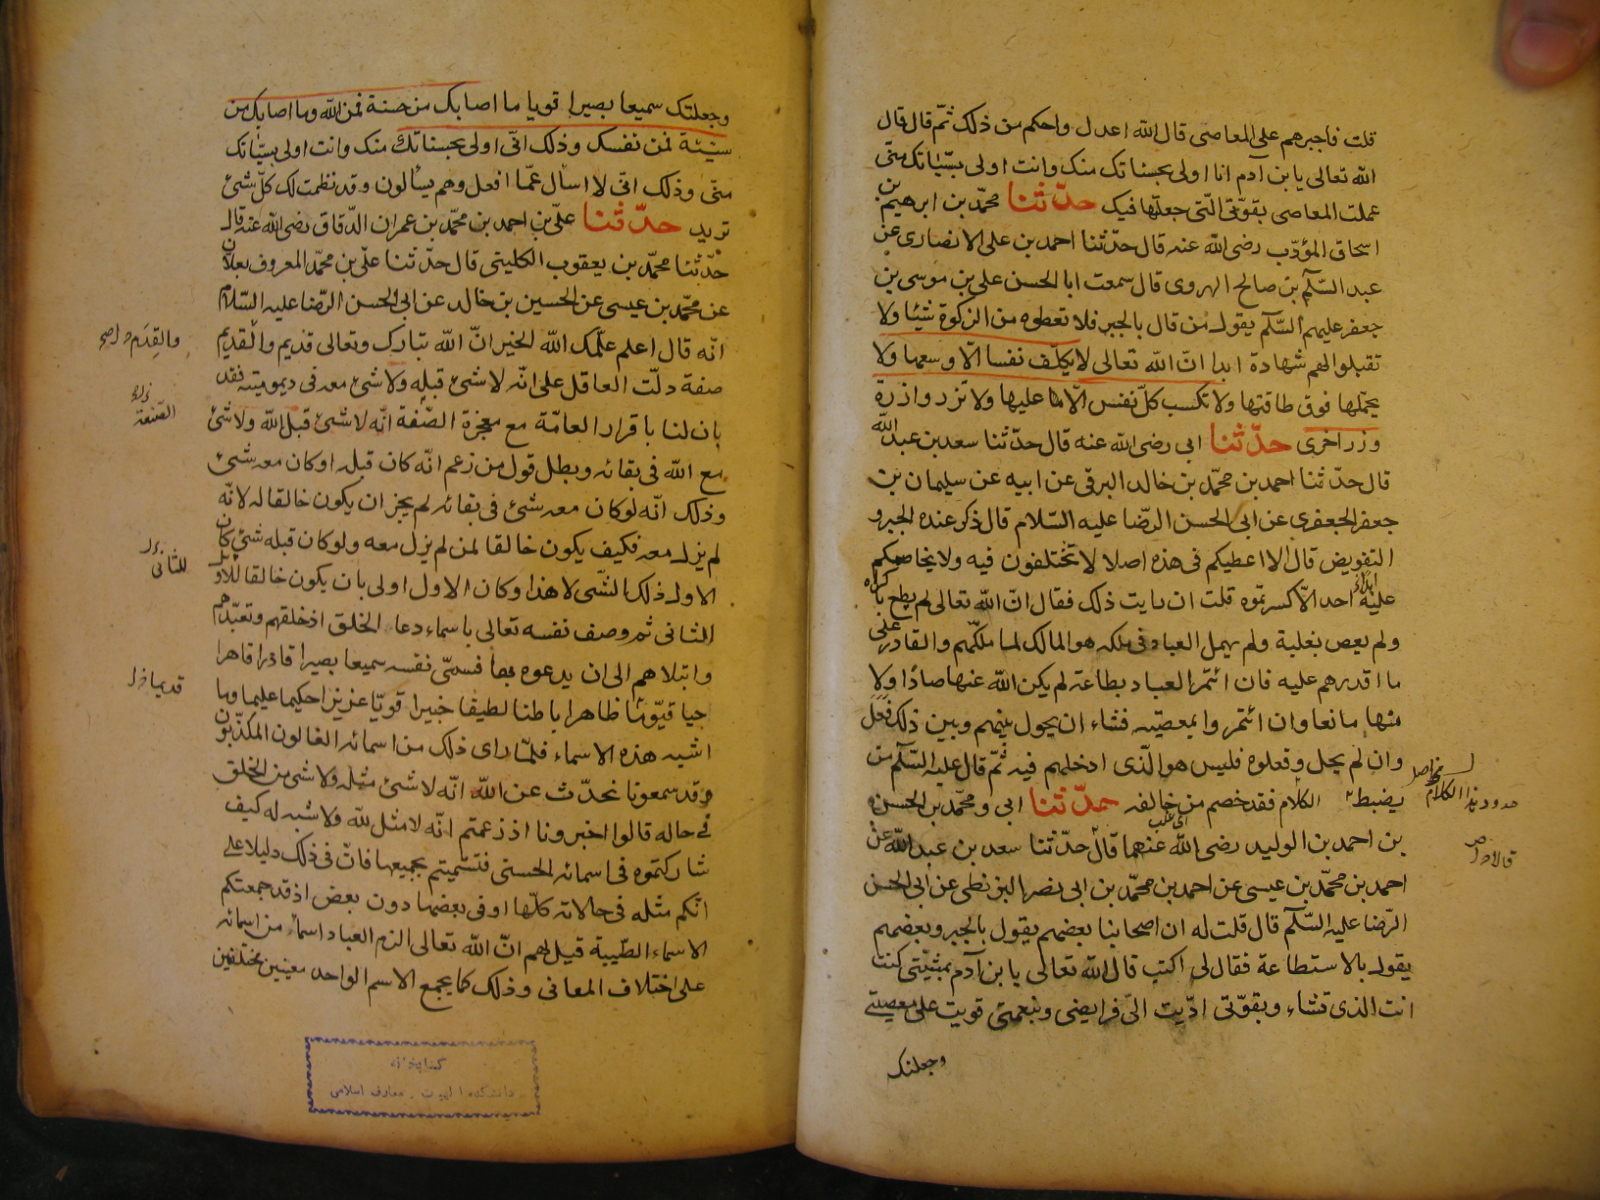 قلت فاجبرهم على المعاصى قال الله اعدل واحكم من ذلك ثم قال قال
الله تعالى يا بن آدم انا اولى بحسناتك منك وانت اولى بسيّئاتك منّى
عملت المعاصى بقوّتى الّتى جعلتها فيك حدّثنا محمّد بن ابرهيم بن
اسحاق المؤدّب رضى الله عنه قال حدّثنا احمد بن على الانصارى عن
عبد السّلم بن صالح الهروى قال سمعت ابا الحسن على بن موسى بن
جعفر عليهم السّلم يقول من قال بالجبر فلا تعطوه من الزكوة شيئا ولا
تقبلوا لهم شهادة ابدا انّ الله تعالى لا يكلّف نفسا الّا وسعها ولا
يحمّلها فوق طاقتها ولا تكسب كلّ نفس الّا عليها ولا تزر وازرة
وزر اخرى حدّثنا ابى رضى الله عنه قال حدّثنا سعد بن عبد الله
قال حدّثنا احمد بن محمّد بن خالد البرقى عن ابيه عن سليمان بن
جعفر الجعفرى عن ابى الحسن الرّضا عليه السّلام قال ذكر عنده الجبر و
التفويض قال الا اعطيكم فى هذه اصلا لا تختلفون فيه ولا يخاصمكم
عليه احد الّا كسرتموه قلت ان رايت ذلك فقال انّ الله تعالى لم يطع باكراه
ولم يعص بغلبة ولم يهمل العباد فى ملكه هو المالك لما ملّكهم والقادر على
ما اقدرهم عليه فان ائتمر العباد بطاعته لم يكن الله عنها صادّا ولا
منها مانعا وان ائتمروا بمعصيته فشاء ان يحول بينهم وبين ذلك فعل
وان لم يحل وفعلوه فليس هو الّذى ادخلهم فيه ثمّ قال عليه السّلم من
يضبط الكلام فقد خصم من خالفه حدّثنا ابى ومحمّد بن الحسن
بن احمد بن الوليد رضى الله عنهما قال حدّثنا سعد بن عبد الله عن
احمد بن محمّد بن عيسى عن احمد بن محمّد بن ابى نصر البزنطى عن ابى الحسن
الرّضا عليه السّلم قال قلت له ان اصحابنا بعضهم يقول بالجبر وبعضهم
يقول بالاستطاعة فقال لى اكتب قال الله تعالى يا بن آدم بمشيّتى كنت
انت الذى تشاء وبقوّتى ادّيت الىّ فرايضى وبنعمتى قويت على معصيتى
وجعلتك
حدود هذا الكلام
وجعلتك سميعا بصيرا قويا ما اصابك من حسنة فمن الله وما اصابك من
سيّئة فمن نفسك وذلك انّى اولى بحسناتك منك وانت اولى بسيّئاتك
منّى وذلك انّى لا اسأل عمّا افعل وهم يسألون وقد نظمت لك كلّ شئ
تريد حدّثنا علىّ بن احمد بن محمّد بن عمران الدّقاق رضى الله عنه قال
حدّثنا محمّد بن يعقوب الكلينى قال حدّثنا علىّ بن محمّد المعروف بعلان
عن محمّد بن عيسى عن الحسين بن خالد عن ابى الحسن الرّضا عليه السّلام
انّه قال اعلم علّمك الله الخير انّ الله تبارك وتعالى قديم والقديم
صفة دلّت العاقل على انّه لا شئ قبله ولا شئ معه فى ديموميّته فقد
بان لنا باقرار العامّة مع معجزة الصّفة انّه لا شئ قبل الله ولا شئ
مع الله فى بقائه وبطل قول من زعم انّه كان قبله او كان معه شئ
وذلك انّه لو كان معه شئ فى بقائه لم يجز ان يكون خالقا له لانّه
لم يزل معه فكيف يكون خالقا لمن لم يزل معه ولو كان قبله شئ كان
الاول ذلك الشّى لا هذا وكان الاول اولى بان يكون خالقا للاوّل
الثانى ثم وصف نفسه تعالى باسماء دعا الخلق اذ خلقهم وتعبّدهم
وابتلاهم الى ان يدعوه بها فسمّى نفسه سميعا بصيرا قادرا قاهرا
حيا قيّوما ظاهرا باطنا لطيفا خبيرا قويّا عزيزا حكيما عليما وما
اشبه هذه الاسماء فلمّا راى ذلك من اسمائه الغالون المكذّبون
وقد سمعونا نحدّث عن الله انّه لا شئ مثله ولا شئ من الخلق
فى حاله قالوا اخبرونا اذ زعمتم انّه لا مثل لله ولا شبه له كيف
شاركتموه فى اسمائه الحسنى فتسمّيتم بجميعها فانّ فى ذلك دليلا على
انّكم مثله فى حالاته كلّها او فى بعضها دون بعض اذ قد جمعتكم
الاسماء الطّيبة قيل لهم انّ الله تعالى الزم العباد اسماء من اسمائه
على اختلاف المعانى وذلك كما يجمع الاسم الواحد معنيين مختلفين
والقدم
الصّنعة
للثانى
قديما
كتابخانه
دانشكده الهيات و معارف اسلامى